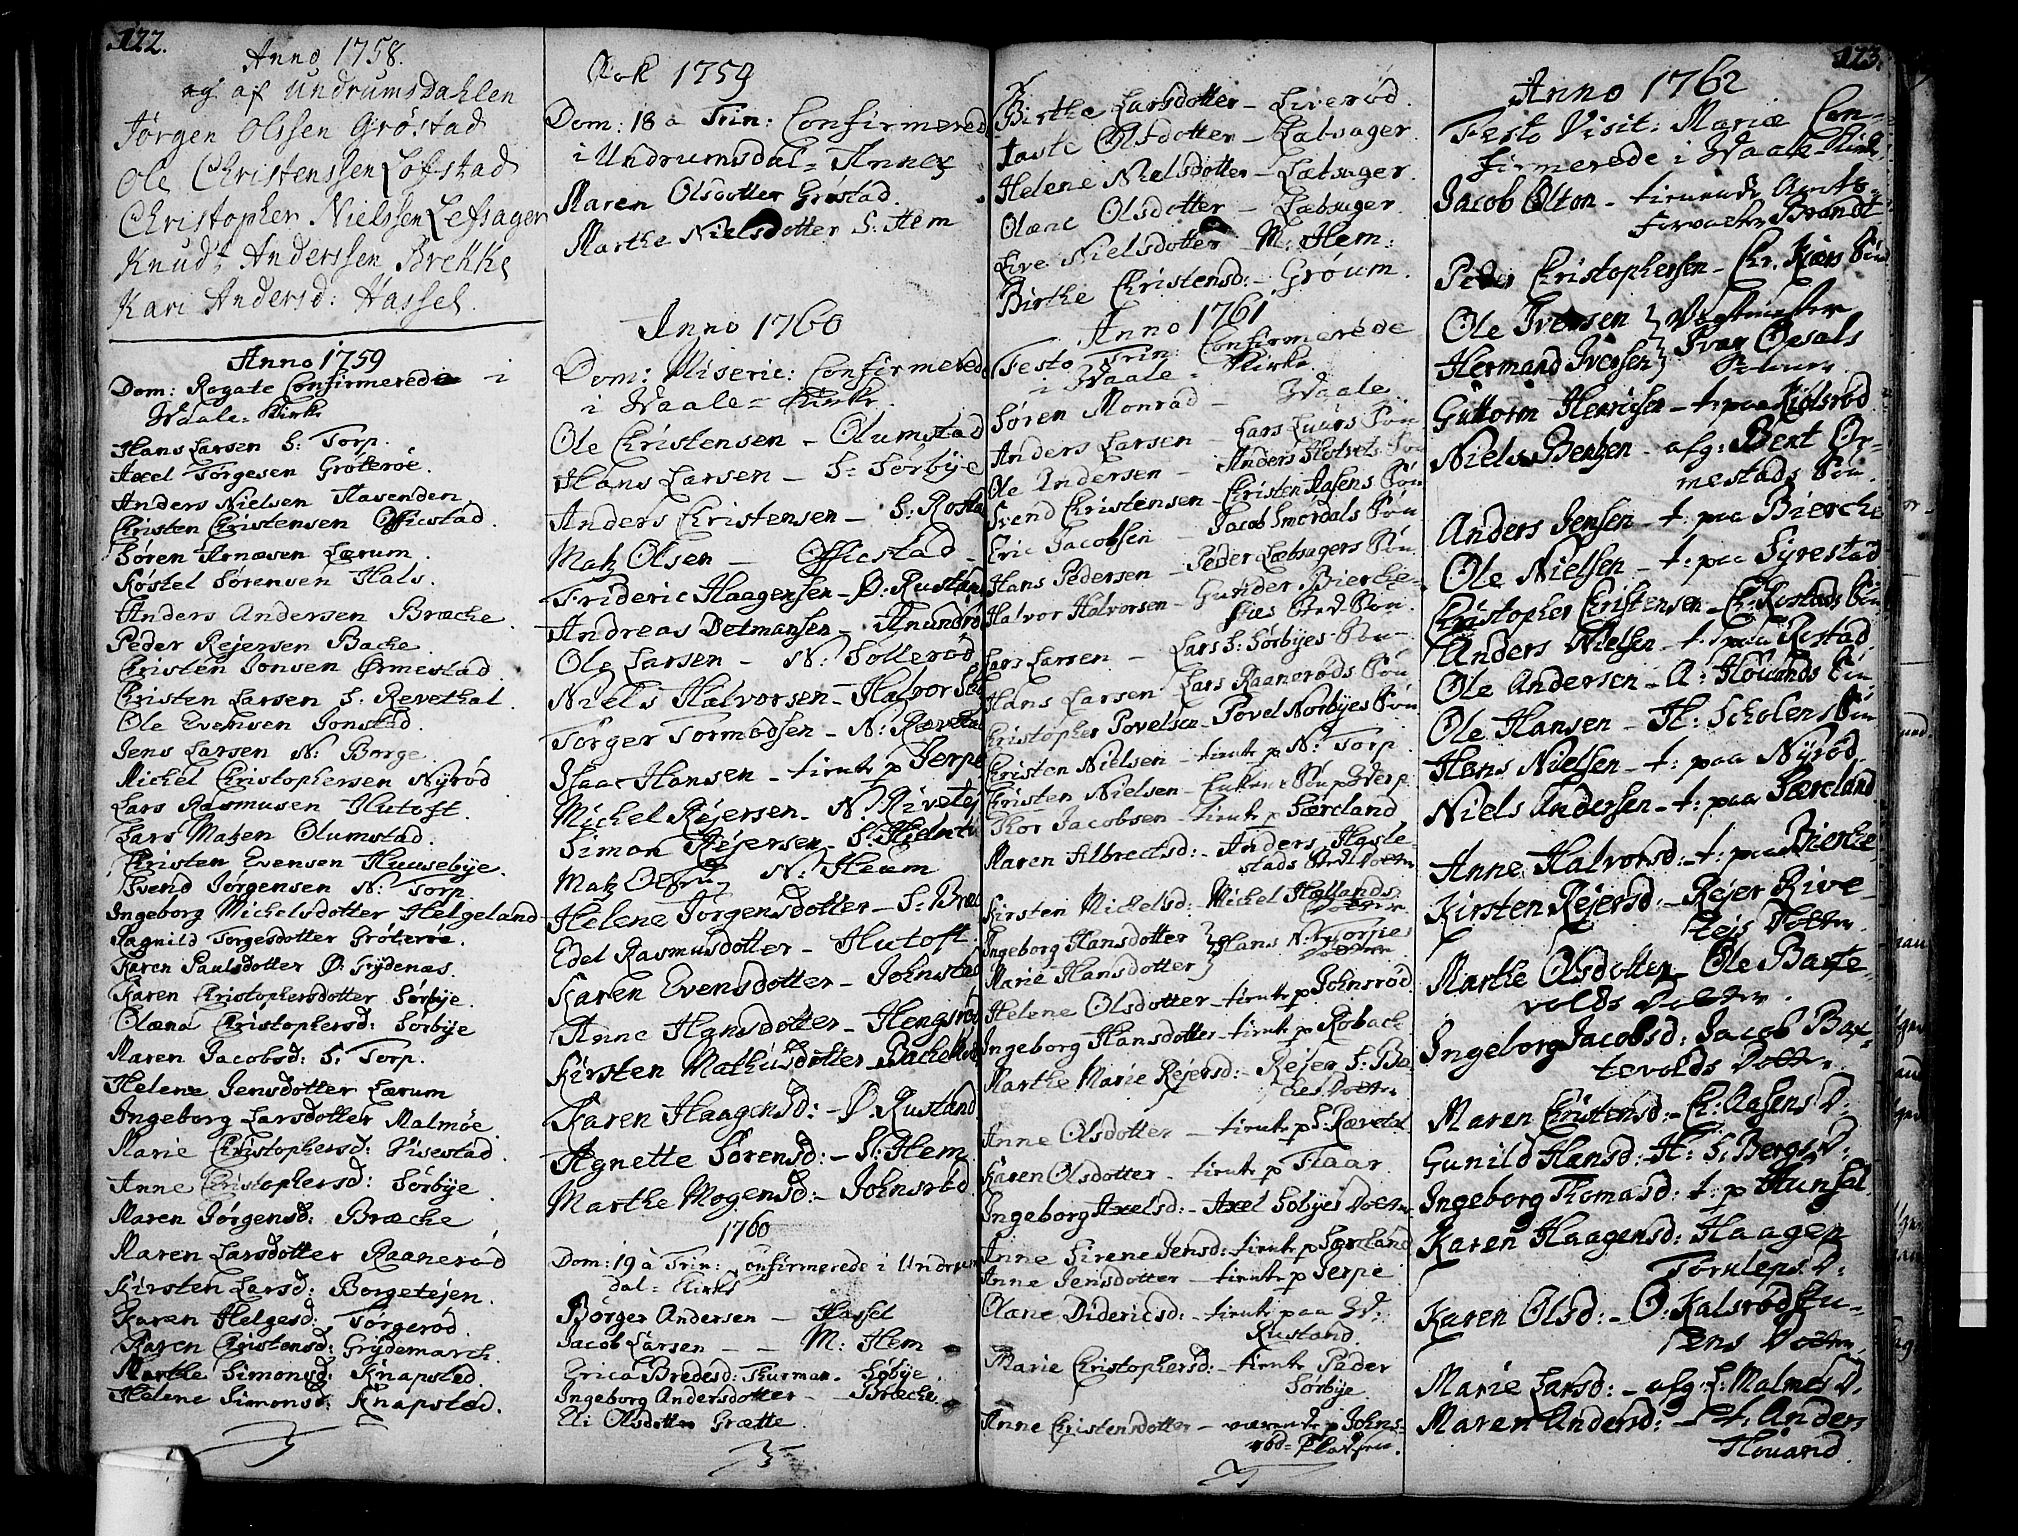 122.
Anno 1758.
og af Undrumsdahlen
Jørgen Olssen Grøstad
Ole Christenssen Lofstad
Christopher Nielssen Lefsager
Knud Anderssen Brekke
Kari Andersd: Hassel.
Anno 1759
Dom: Rogate Confirmerede i
Waale-Kirke
Hans Larsen S: Torp.
Axel Torgesen Gröteröe.
Anders Nielsen Aasenden
Christen Christensen Officstad.
Sören Arnæsen Lærum.
Köstel Sörensen Hals.
Anders Andersen Bræche.
Peder Rejersen Bache.
Christen Jonsen Ormestad.
Christen Larsen S: Revethal.
Ole Evensen Jonstad.
Jens Larsen N: Borge.
Michel Christophersen Nÿröd
Lars Rasmusen Hutoft.
Lars Matzen Olumstad.
Christen Evensen Huusebÿe.
Svend Jörgensen N: Torp.
Ingeborg Michelsdotter Helgeland
Ragnild Torgesdotter Gröteröe.
Karen Paulsdotter Ø: Frÿdenæs.
Karen Christophersdotter Sörbÿe.
Olæna Christophersd: Sörbÿe
Maren Jacobsd: S: Torp.
Helene Jensdotter Lærum
Ingeborg Larsdotter Malmöe.
Marie Christophersd: Visestad.
Anne Christophersd: Sörbÿe.
Maren Jörgensd: Bræche
Maren Larsdotter Raaneröd
Kirsten Larsd: Borgetejen.
Karen Helgesd: Torgeröd.
Karen Christensd: Grÿdemarch.
Marthe Simonsd: Knapsted.
Helene Simonsd: Knapsted.
Nok 1759
Dom: 18 a Trin: Confirmered
i Undrumsdal-Annex
Maren Olsdotter Gröstad.
Marthe Nielsdotter S: Hem
Anno 1760
Dom: Miseric: Confirmered
i Waale-Kirke.
Ole Christensen - Olumstad
Hans Larsen - S: Sörbÿe
Anders Christensen - S: Rosta
Matz Olsen - Officstad
Frideric Haagensen - Ø: Rustan
Andreas Detmansen - Anundrö
Ole Larsen - N: Solleröd
Niels Halvorsen - Halvor
Torger Tormodsen - N: Rævetal
Isaac Hansen - tienete p Jerpe
Michel Rejersen - N: Rivetej
Simon Rejersen - S:
Matz N: Heum
Helene Jörgensdotter - S: Bræc
Edel Rasmusdotter - Hutoft.
Karen Evensdotter - Johnstad
Anne Hansdotter - Hengsrö
Kirsten Mathiusdotter - Bache
Karen Haagensd: - Ø: Rustand
Agnette Sörensd: - S: Hem.
Marthe Mogensd: - Johnsröd
1760
Dom: 19 a Trin: Confirmerede i Undrum
dal-Kirke
Börger Andersen - Hassel
Jacob Larsen - - M: Hem
Erica Bredesd: Thurman - Söbÿe.
Ingeborg Andersdotter - Bræche.
Eli Olsdotter Grætte.
123.
Birthe Larsdotter - Liveröd.
Taale Olsdotter - Læbsager.
Helene Nielsdotter - Læbsager.
Olæne Olsdotter - Læbsager.
Live Nielsdotter - M: Hem:
Birthe Christensd: - Gröum.
Anno 1761
Festo Trin: Confirmerede
i Waale-Kirke.
Sören Monrad - Waale.
Anders Larsen - Lars Luurs Sön
Ole Andersen - Anders Sön
Svend Christensen - Christen Aasens Sön
Eric Jacobsen - Jacob Smördals Sön
Hans Pedersen - Peder Læbsagers Sön
Halvor Halvorsen - Gunder Bierche-
Sön.
Lars Larsen - Lars S: Sörbÿes Sön
Hans Larsen - Lars Raaneröds Sön
Christopher Povelsen - Povel Norbÿes Sön
Christen Nielsen - tiente p N: Torp.
Christen Nielsen - Enkens Sön p Jerp.
Thor Jacobsen - tiente p Særeland
Maren Albrectsd: - Anders Hasle-
stads
Kirsten Michelsd: - Michel Hællands
Dotter
Ingeborg Hansdotter } Hans N: Torpes
Marie Hansdotter } Dotter
Helene Olsdotter - tiente p Johnsröd.
Ingeborg Hansdotter - tiente p Robach
Marthe Marie Rejersd: - Rejer S: Bæ-
ches Dotter
Anne Olsdotter - tiente p S: Rævetal.
Karen Olsdotter - tiente p Flaar.
Ingeborg Axelsd: - Axel Solÿes Dotter
Anne Sirene Jensd: tiente p Særeland
Anne Jensdotter - tiente p Jerpe
Olæne Didericsd: - tiente paa Ød:
Rustand.
Marie Christophersd: - tiente Peder
Sörbÿe.
Anne Christensdotter - værende p Johns-
röd-Pladsen.
Anno 1762
Festo Visit: Mariæ Con-
firmerede i Waale-Kirk
Jacob Olton - tienende Amts-
forvalter Brandt
Peder Christophersen - Chr. Kiærs Sön
Ole Iversen } Vagtmester
Hermand Iversen } Ivar Oesals
Sönner.
Guttorm Henricsen - t: paa Kiölsröd
Niels Bentzen - afg: Bent Or-
mestads Sön.
Anders Jensen - t: paa Bierche
Ole Nielsen - t: paa Sÿrestad
Christopher Christensen - Ch: Restads Sön
Anders Nielsen - t: paa Restad
Ole Andersen - A: Höuands Sön
Ole Hansen - H: Scholens Sön
Hans Nielsen - t: paa Nÿröd
Niels Andersen - t: paa Særeland
Anne Halvorsd: - t: paa Bierche
Kirsten Rejersd: - Rejer Rive-
tejs Dotter.
Marthe Olsdotter - Ole Baxte-
volds Dotter.
Ingeborg Jacobsd: Jacob Bax-
tevolds Dotter.
Maren Christensd: - Ch: Aasens D.
Gunild Hansd: H: S: Bergs D:
Ingeborg Thomasd: t: p Hunsal
Karen Haagensd: Haagen
Toruleps D:
Karen Olsd: - O: Kalsröd En-
kens Dotter
Marie Larsd: - afg: L: Malmes D.
Maren Andersd: - t: Anders
Höuand.